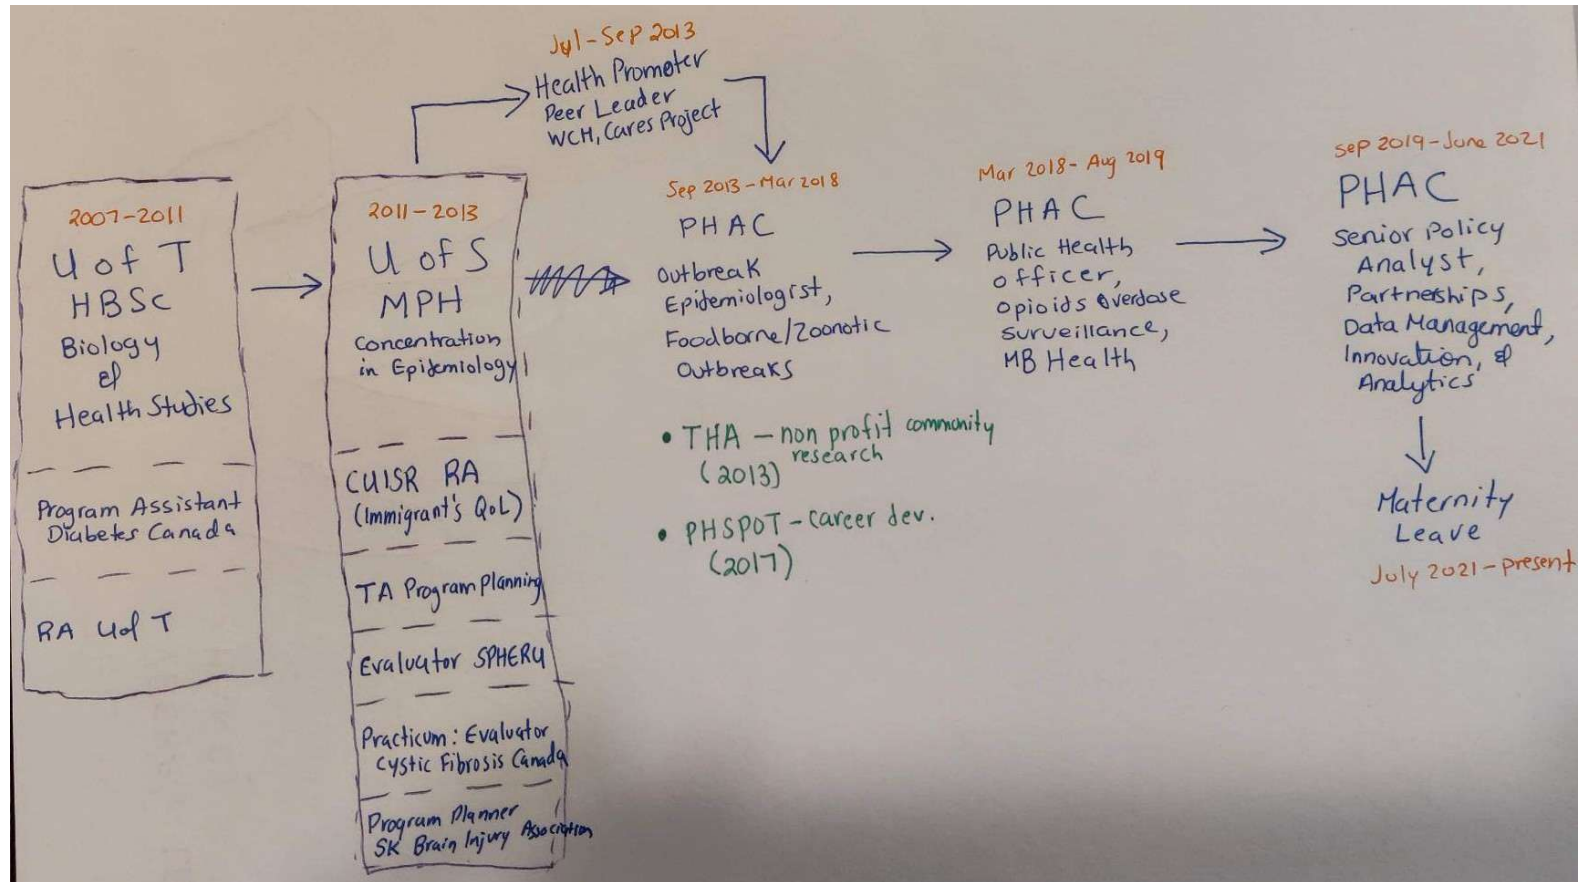 2007-2011
U of T
HBSc
Biology
&
Health Studies
Program Assistant
Diabetes Canada
RA U of T
2011-2013
U of S
MPH
Concentration
in Epidemiology
CUISR RA
(Immigrant's QoL)
TA Program Planning
Evaluator SPHERU
Practicum: Evaluator
Cystic Fibrosis Canada
Program Planner
SK Brain Injury Association
Jul-Sep 2013
Health Promoter
Peer Leader
WCH, Cares Project
Sep 2013-Mar 2018
PHAC
Outbreak
Epidemiologist,
Foodborne/Zoonotic
Outbreaks
• THA - non profit community
research
(2013)
• PHSPOT - career dev.
(2017)
Mar 2018-Aug 2019
PHAC
Public Health
officer,
Opioids Overdose
Surveillance,
MB Health
Sep 2019-June 2021
PHAC
Senior Policy
Analyst,
Partnerships,
Data Management,
Innovation, &
Analytics
Maternity
Leave
July 2021-present